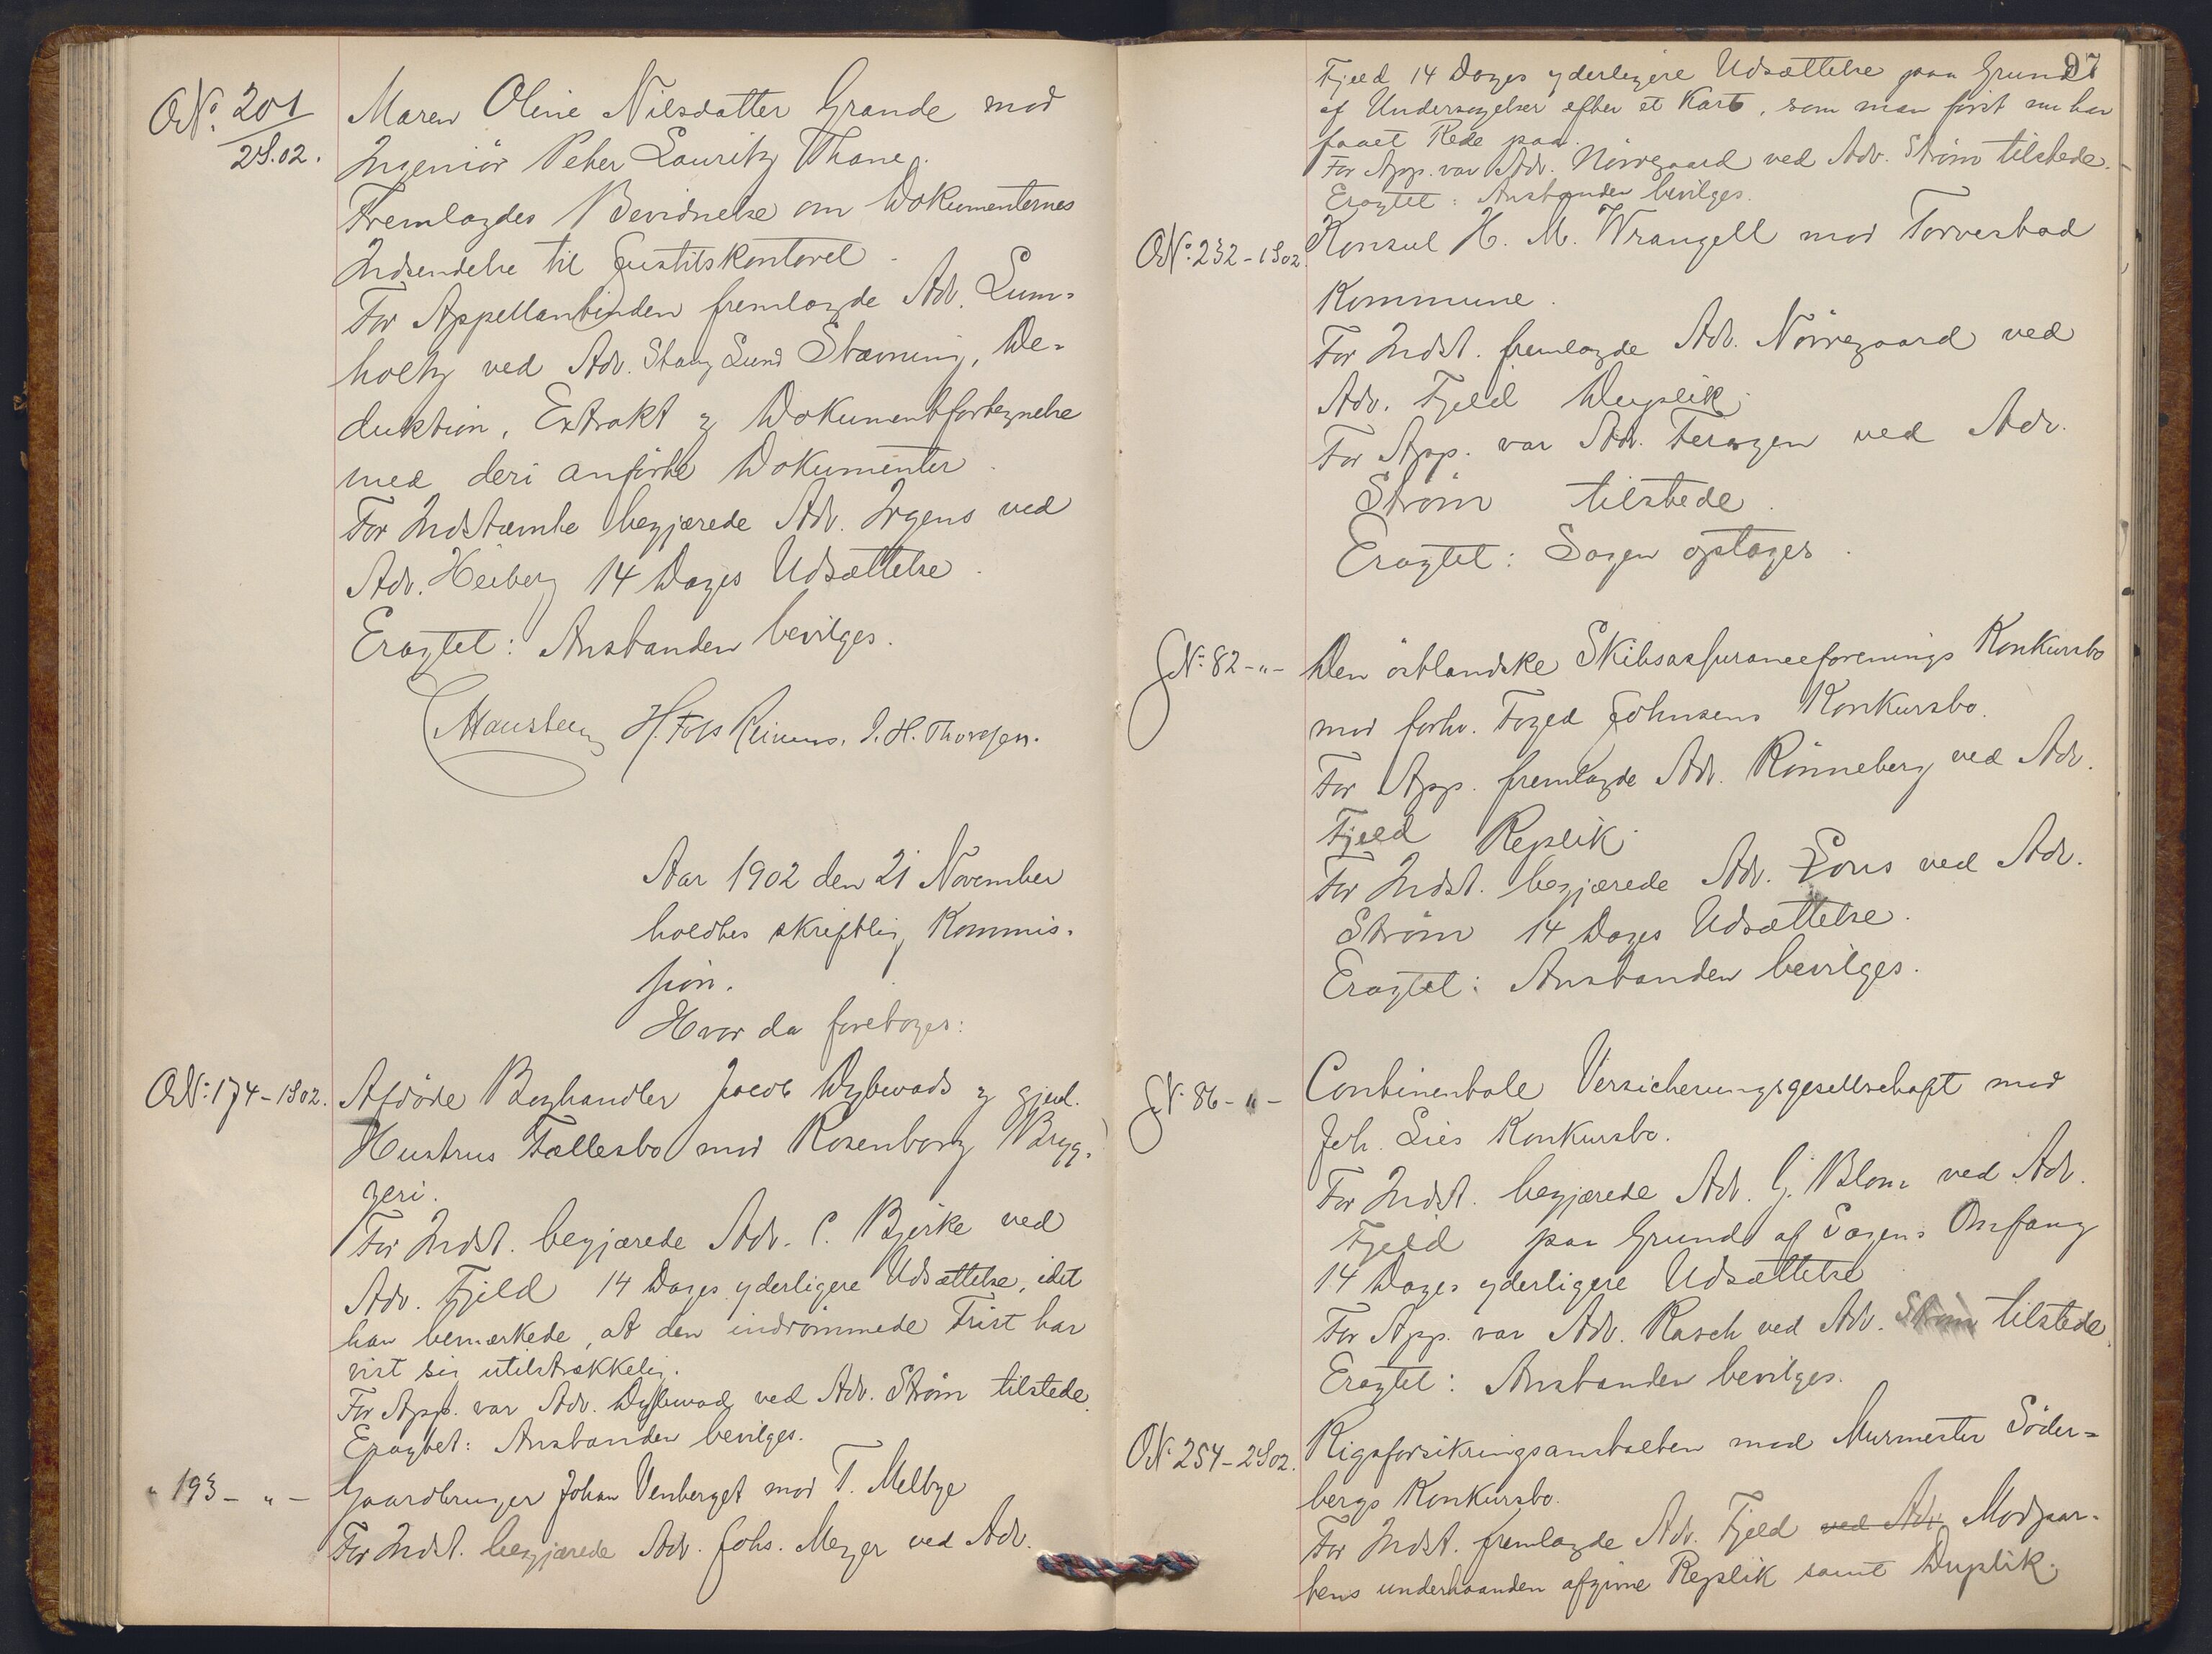 O.N. 201
2S.02.
Maren Oline Nilsdatter Grande mod
Ingeniör Peter Lauritz Thane.
Fremlagdes Bevidnelse om Dokumenternes
Indsendelse til Justitskontoret.
For Appellantinden fremlagde Adv. Lum-
holtz ved Adv. Stang Lund Stævning, De-
duktion, Extrakt og Dokumentfortegnelse
med deri anförte Dokumenter.
For Indstævnte begjærede Adv. Irgens ved
Adv. Heiberg 14 Dages Udsættelse.
Eragtet: Anstanden bevilges.
Hansteen H. Foss Reimers. J. H. Thoresen.
Aar 1902 den 21 November
holdtes skriftlig Kommis-
sion.
Hvor da foretoges:
O.N: 174-1S02.
Afdöde Boghandler Jacob Dybwads og gjenl.
Hustrus Fællesbo mod Rosenborg Brygg-
geri.
For Indst. begjærede Adv. C. Bjerke ved
Adv. Fjeld 14 Dages yderligere Udsættelse, idet
han bemærkede, at den indrömmede Frist har
vist sig utilstrækkelig.
For App. var Adv. Dybwad ved Adv. Ström tilstede.
Eragtet: Anstanden bevilges.
" 193- " -
Gaardbruger Johan Venberget mod T. Melbye
For Indst. begjærede Adv. Johs. Meyer ved Adv.
97
Fjeld 14 Dages yderligere Udsættelse paa Grund
af Undersøgelser efter et Kart, som man först nu har
faaet Rede paa.
For App. var Adv. Nörregaard ved Adv. Ström tilstede. -
Eragtet: Anstanden bevilges.
O.N: 232-1S02
Konsul H. M. Wrangell mod Torvestad
Kommune.
For Indst. fremlagde Adv. Nörregaard ved
Adv. Fjeld Duplik.
For App. var Adv. Feragen ved Adv.
Ström tilstede.
Eragtet: Sagen optages.
G.N: 82-"-
Den östlandske Skibsassuranceforenings Konkursbo
mod forhv. Foged Johnsens Konkursbo.
For App. fremlagde Adv. Rönneberg ved Adv.
Fjeld Replik.
For Indst. begjærede Adv. Lous ved Adv.
Ström 14 Dages Udsættelse.
Eragtet: Anstanden bevilges.
G.N. 86-"-
Continentale Versicherungsgesellschaft mod
Joh. Lies Konkursbo.
For Indst. begjærede Adv. G. Blom ved Adv.
Fjeld paa Grund af Sagens Omfang
14 Dages yderligere Udsættelse
For App. var Adv. Rasch ved Adv. Ström tilstede.
Eragtet: Anstanden bevilges.
O.N. 254-2S02.
Rigsforsikringsanstalten mod Murmester Söder-
bergs Konkursbo.
For Indst. fremlagde Adv. Fjeld ved Adv. Modpar-
tens underhaanden afgivne Replik samt Duplik.